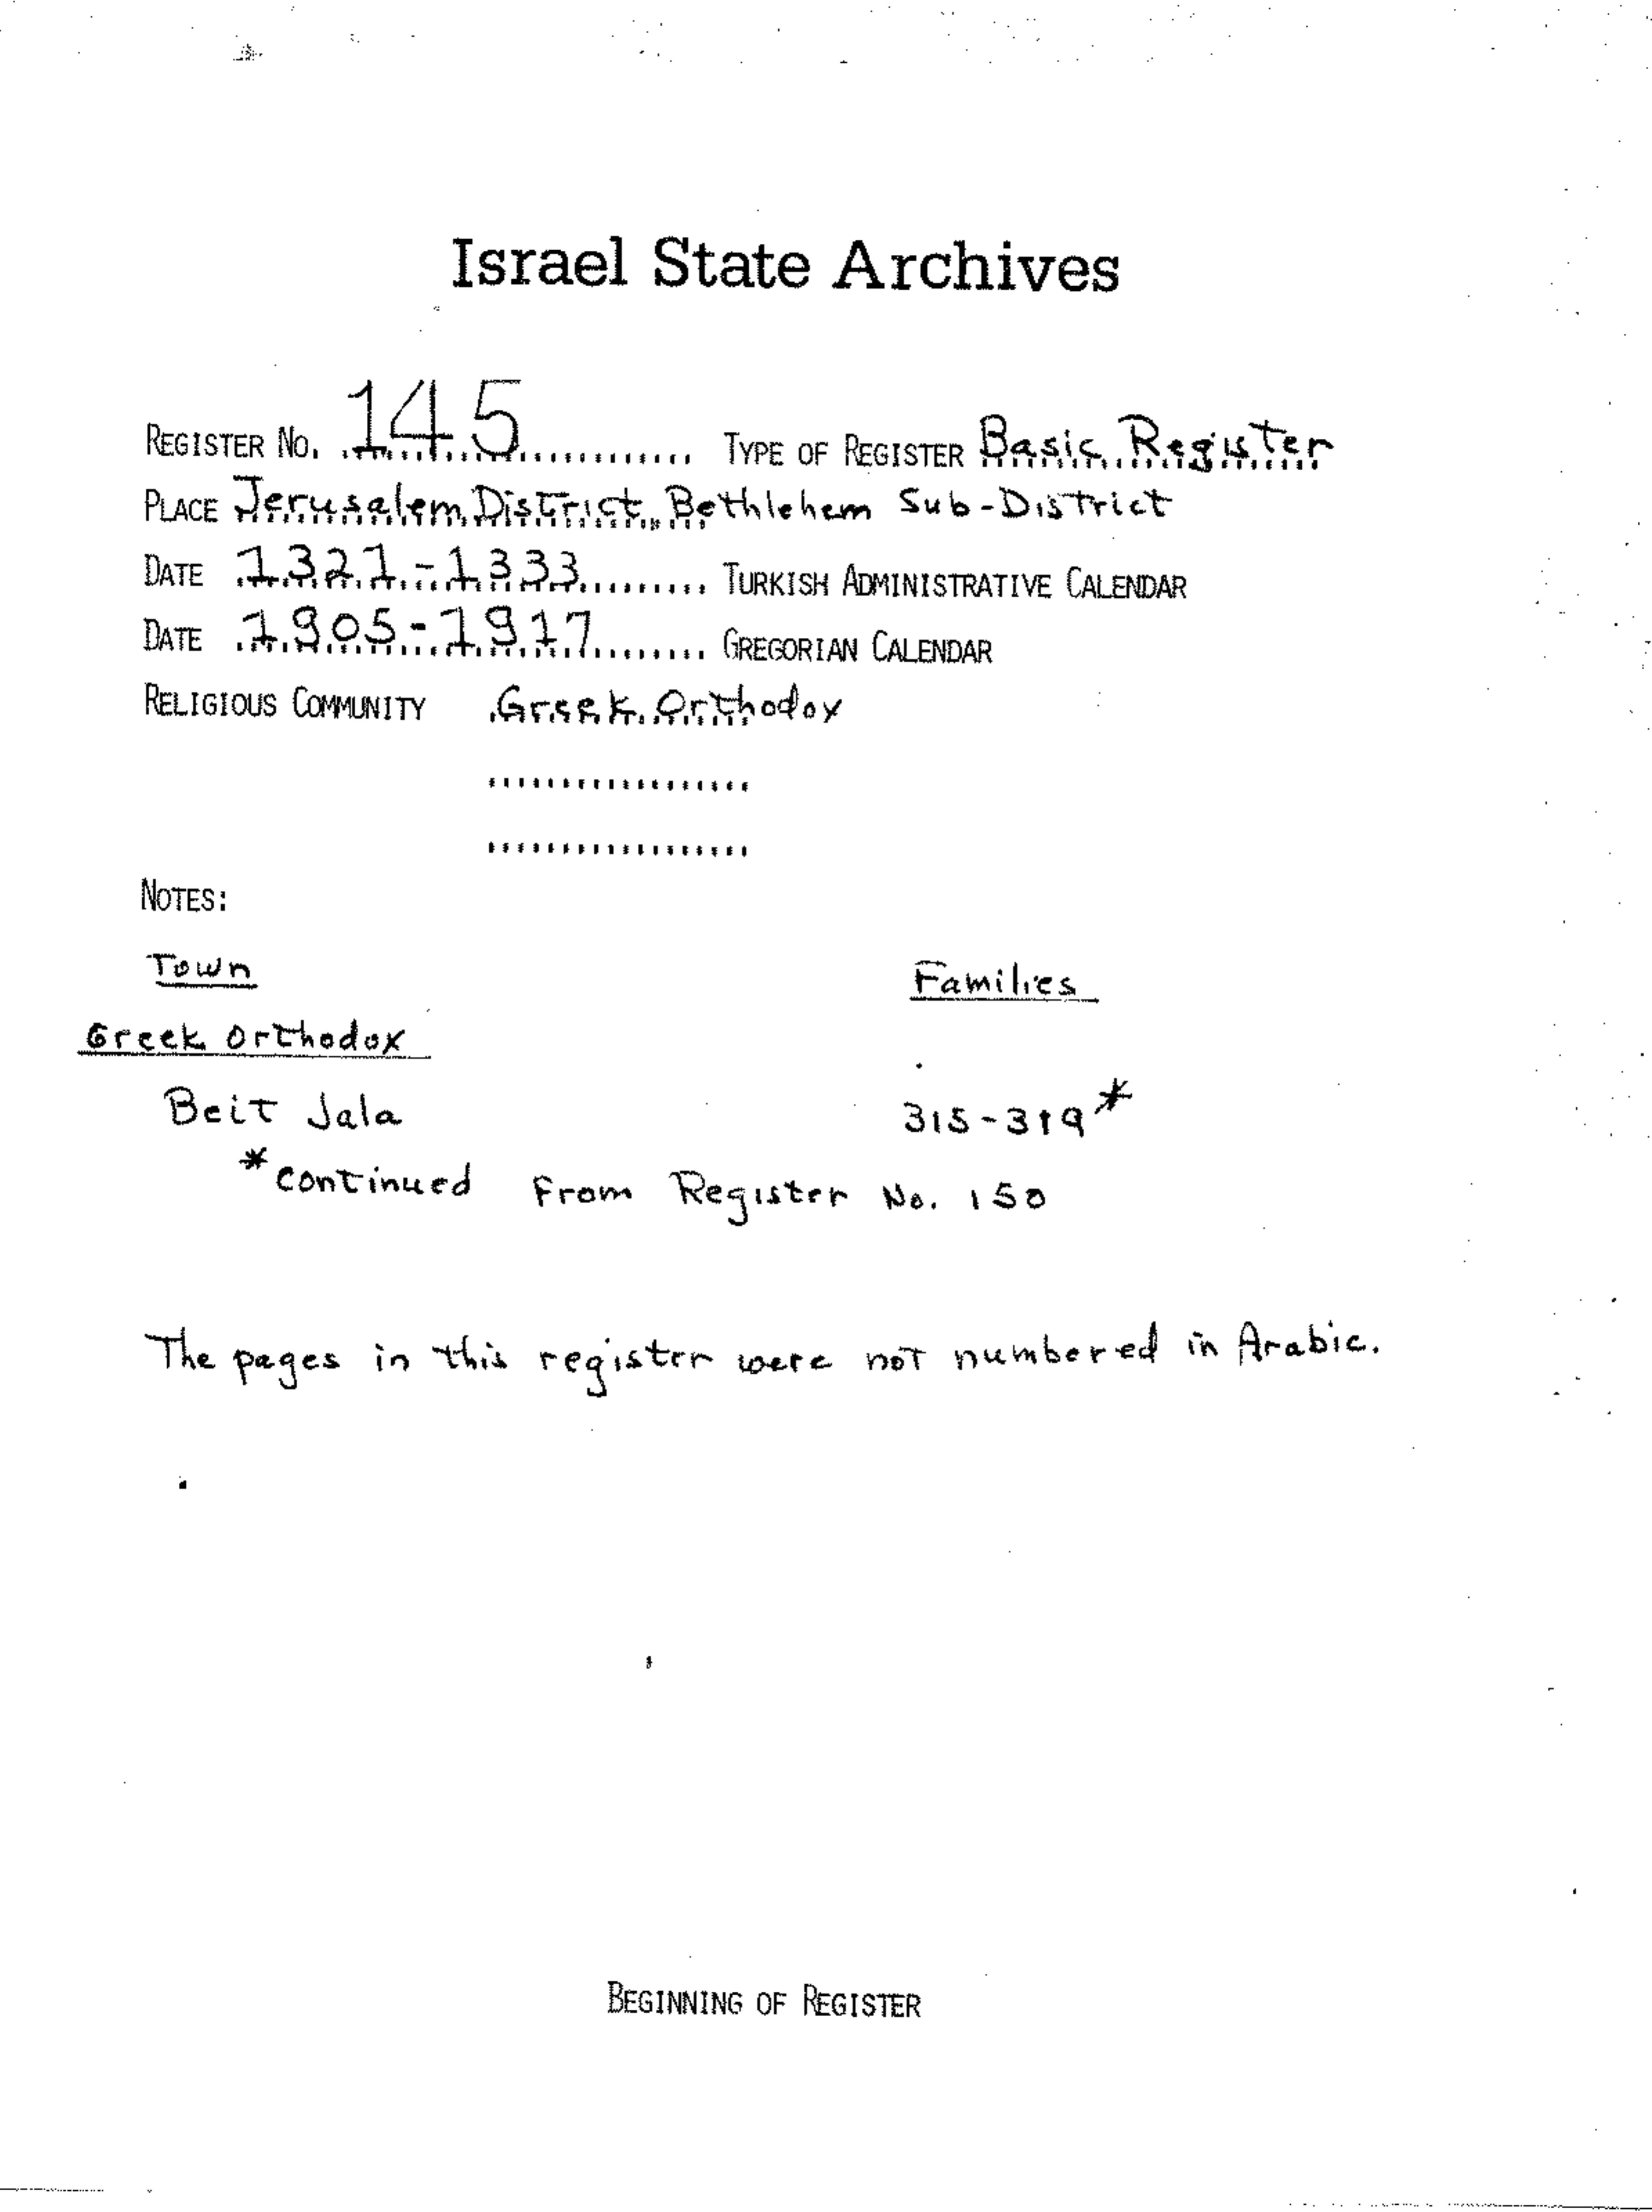 Israel State Archives
REGISTER NO. 145 TYPE OF REGISTER Basic Register
PLACE Jerusalem District, Bethlehem Sub-District
DATE 1321-1333 TURKISH ADMINISTRATIVE CALENDAR
DATE 1905-1917 GREGORIAN CALENDAR
RELIGIOUS COMMUNITY Greek Orthodox
NOTES:
Town Families
Greek Orthodox
Beit Jala 315-319*
*continued From Register No. 150
The pages in this register were not numbered in Arabic.
BEGINNING OF REGISTER